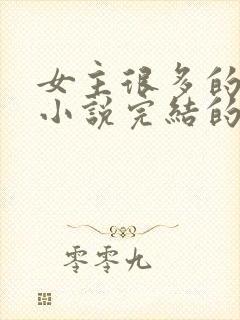 女主很多的
小说完结的
零零九